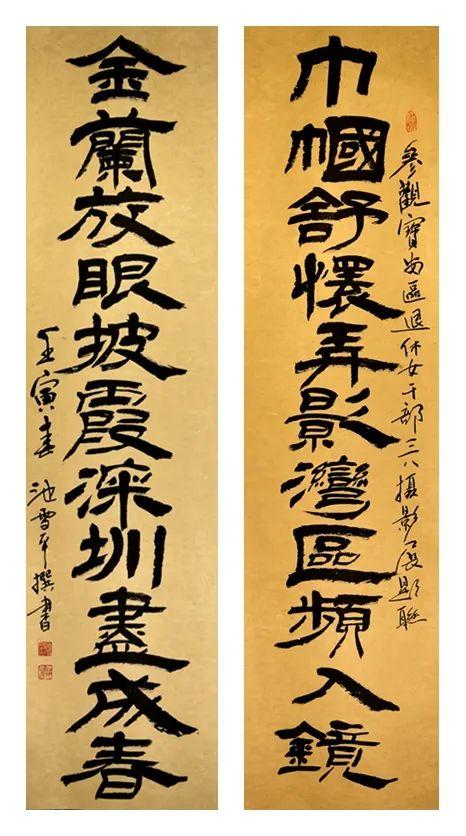 參觀寶安區退休女干部三八摄影展題聯
巾幗舒懷弄影灣區頻入鏡
金蘭放眼披霞深圳盡成春
壬寅春 池雪平撰書